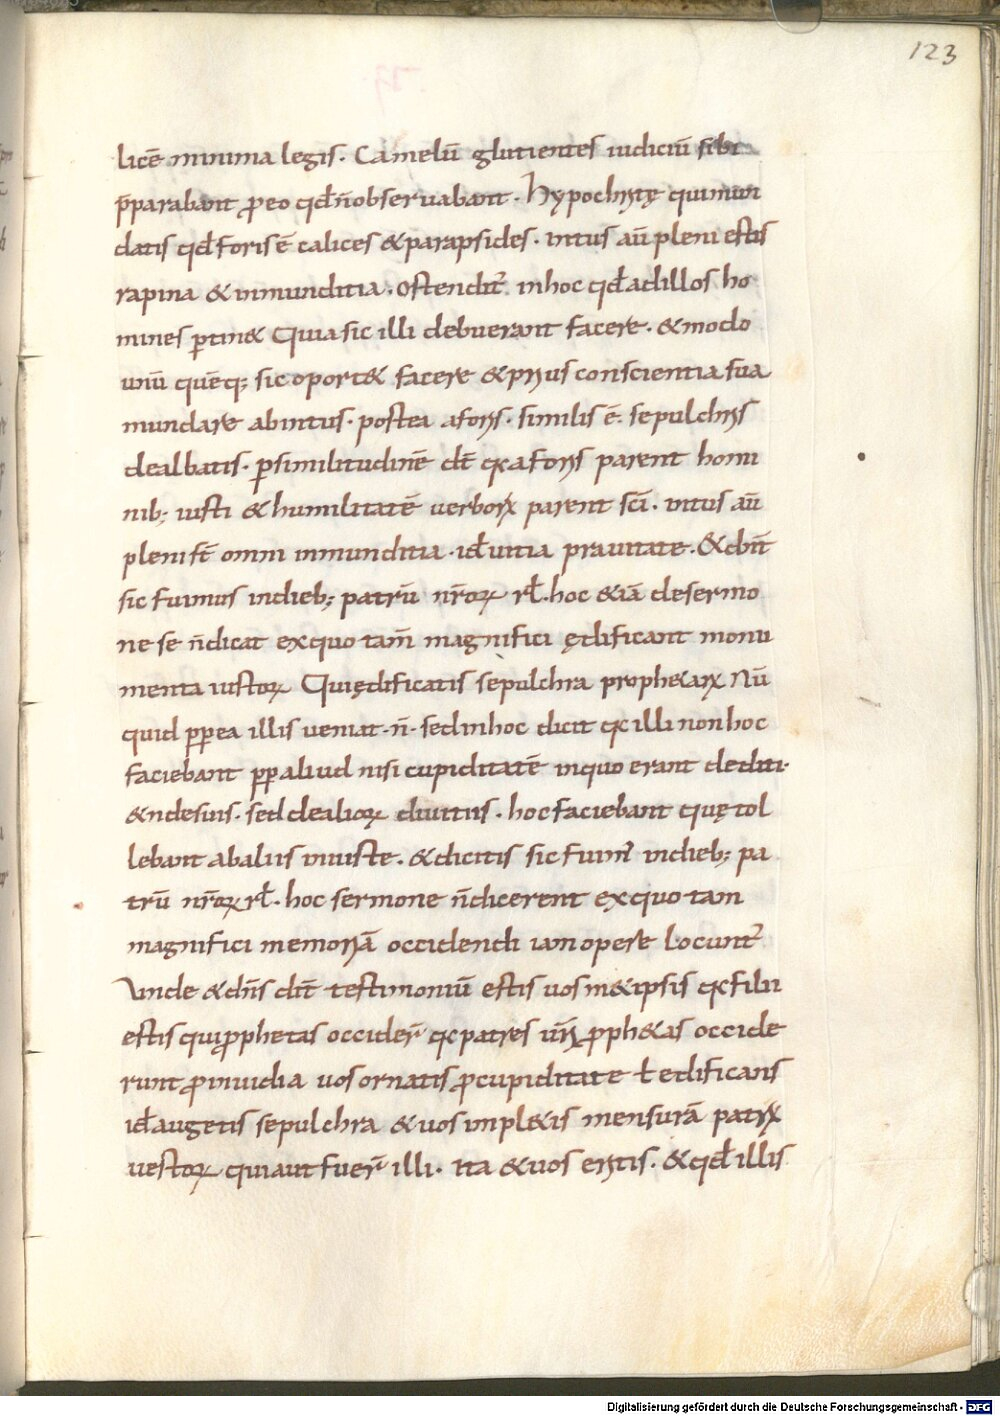 123
licē minima legis. Camelū glutientes iudiciū sibi
p̄parabant ꝓeo qd̄ n̄ obseruabant. Hypochritę qui mun
datis qd̄ foris ē calices & parapsides. intus aū pleni estis
rapina & inmunditia. Ostendit̄ in hoc qd̄ ad illos ho
mines ꝑtin& Quia sic illi debuerant facere. & modo
unū quēq; sic oport& facere & prius conscientia sua
mundare ab intus. postea a foris. similis ē. sepulchris
dealbatis. ꝑ similitudinē dt̄ qꝛ a foris parent homi
nib; iusti & humilitatē uerboꝝ parent sc̄i. intus aū
pleni st̄ omni inmunditia. id̄ uitia prauitate. & dn̄t
sic fuimus in dieb; patrū nr̄oꝝ rl̄. hoc &iā de sermo
ne se n̄ dicat ex quo tam̄ magnifici ędificant monu
menta iustoꝝ Qui ędificatis sepulchra proph&aꝝ Nū
quid ꝓpea illis ueniat. n̄. sed in hoc dicit qꝛ illi non hoc
faciebant ꝓp aliud nisi cupiditatē in quo erant dediti.
& n de suis. sed de alioꝝ diuitiis. hoc faciebant quę tol
lebant ab aliis iniuste. & dicitis sic fuim̄ in dieb; pa
trū nr̄oꝝ rl̄. hoc sermone n̄ dicerent ex quo tam
magnifici memoriā occidendi iam opere locunt̄
Unde & dn̄s dīt testimoniū estis uosm&ipsis qꝛ filii
estis qui ꝓphetas occider̄ qꝛ patres ūri ꝓph&as occide
runt ꝓ inuidia uos ornatis ꝓ cupiditate ł edificans
id̄ augetis sepulchra & uos impl&is mensurā patrꝝ
uestoꝝ qui aut fuer̄ illi. ita & uos eritis. & qd̄ illis
Digitalisierung gefördert durch die Deutsche Forschungsgemeinschaft - DFG